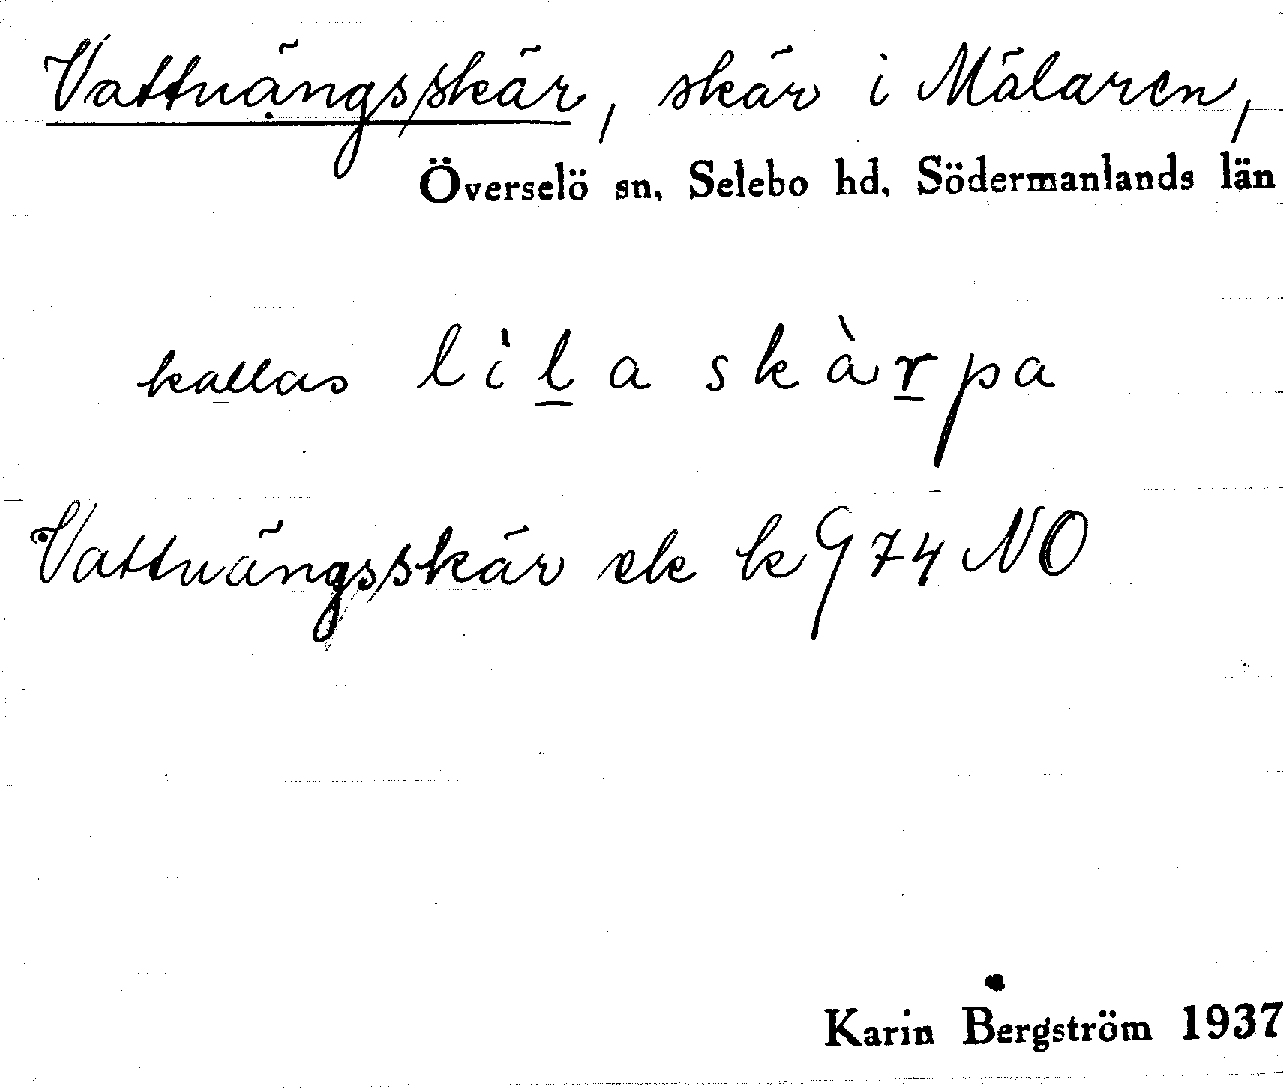 Vattuängsskär, skär i Mälaren,
Överselö sn, Selebo hd, Södermanlands län
kallas lìḻa skàṟpa
Vattuängsskär ek k G 74 NO
Karin Bergström 1937